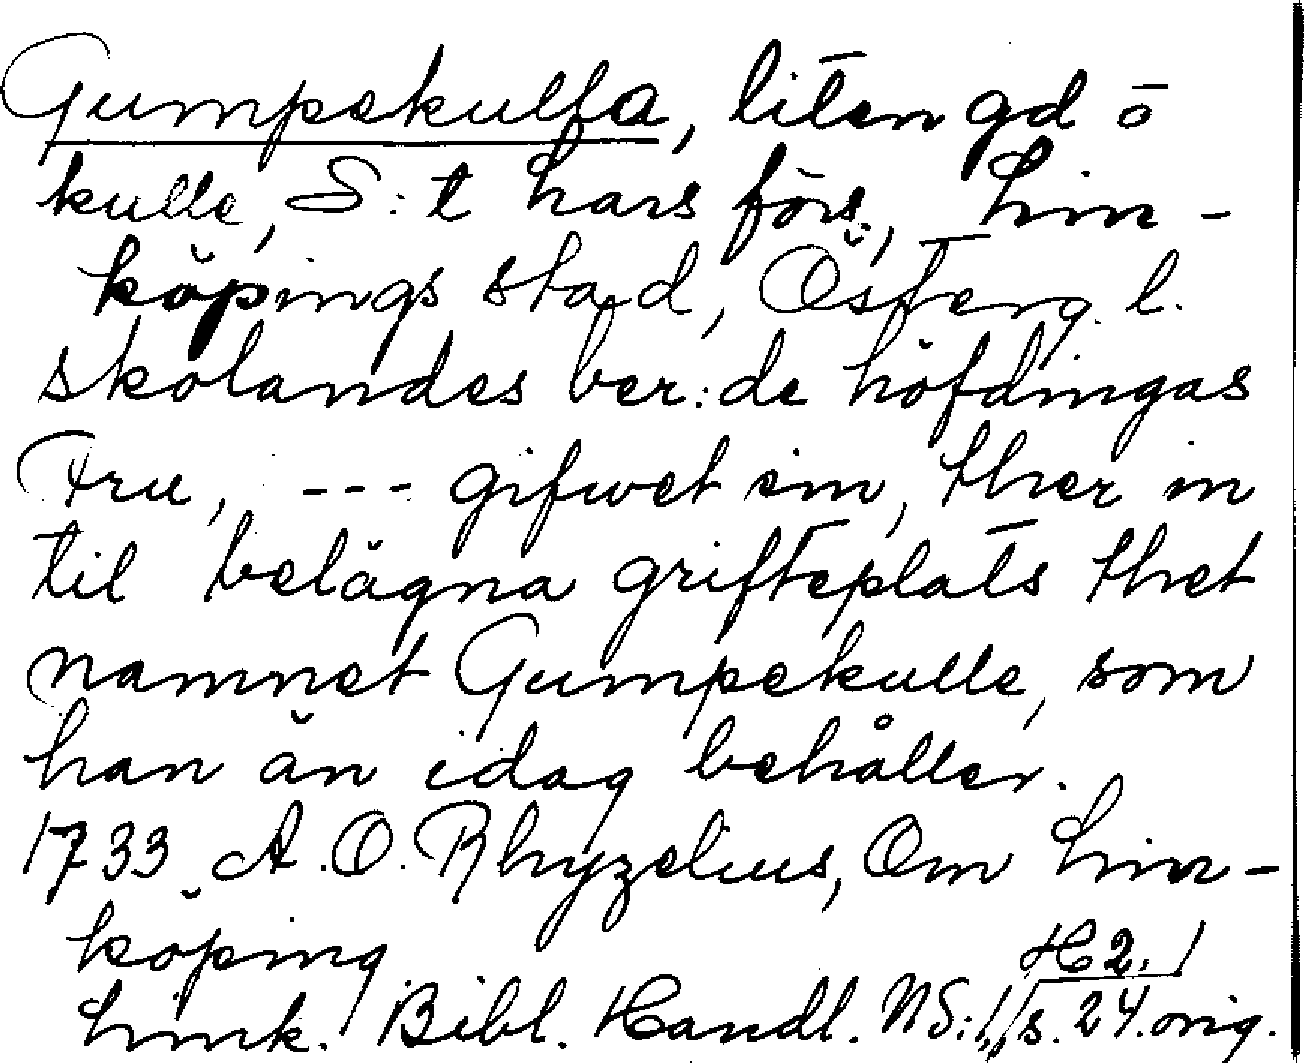 Gumpekulla, liten gd o
kulle, S:t Lars förs., Lin-
köpings stad, Österg. l.
skolandes ber:de höfdingas
Fru, --- gifwet sin, ther in
til belägna grifteplats thet
namnet Gumpekulle, som
han än idag behåller.
1733 A. O. Rhyzelius, Om Lin-
köping
Link. Bibl. Handl. NS: H 2.
s. 24. orig.